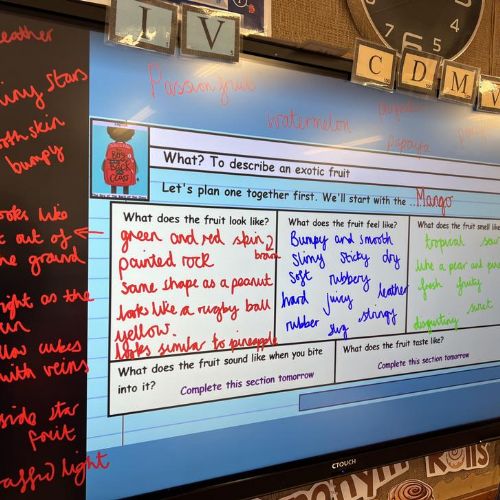 I V
C D M
7 6 5 4
Passion fruit
watermelon
papaya
THE BOY AT THE BACK OF THE CLASS
What? To describe an exotic fruit
Let's plan one together first. We'll start with the ...Mango
What does the fruit look like?
green and red skin
brown
painted rock
same shape as a peanut
looks like a rugby ball
yellow.
looks similar to pineapple
What does the fruit feel like?
Bumpy and smooth
slimy sticky dry
soft rubbery
hard juicy leather
rubber slug stringy
What does the fruit smell like
tropical
like a pear and
fresh fruity
disgusting sweet
What does the fruit sound like when you bite
into it? Complete this section tomorrow
What does the fruit taste like?
Complete this section tomorrow
leather
stars
skin
bumpy
looks like
out of
the ground
as the
cubes
with veins
star
fruit
light
CTOUCH